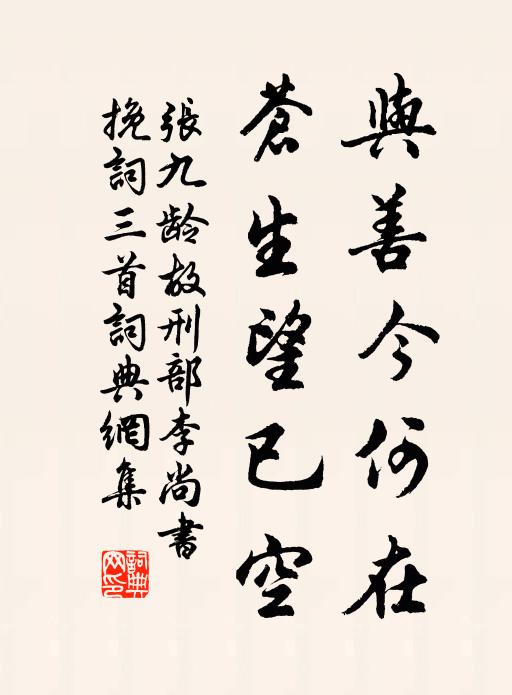 與善今何在
蒼生望已空
張九齡故刑部李尚書
挽詞三首詞典網集
詞典
网印